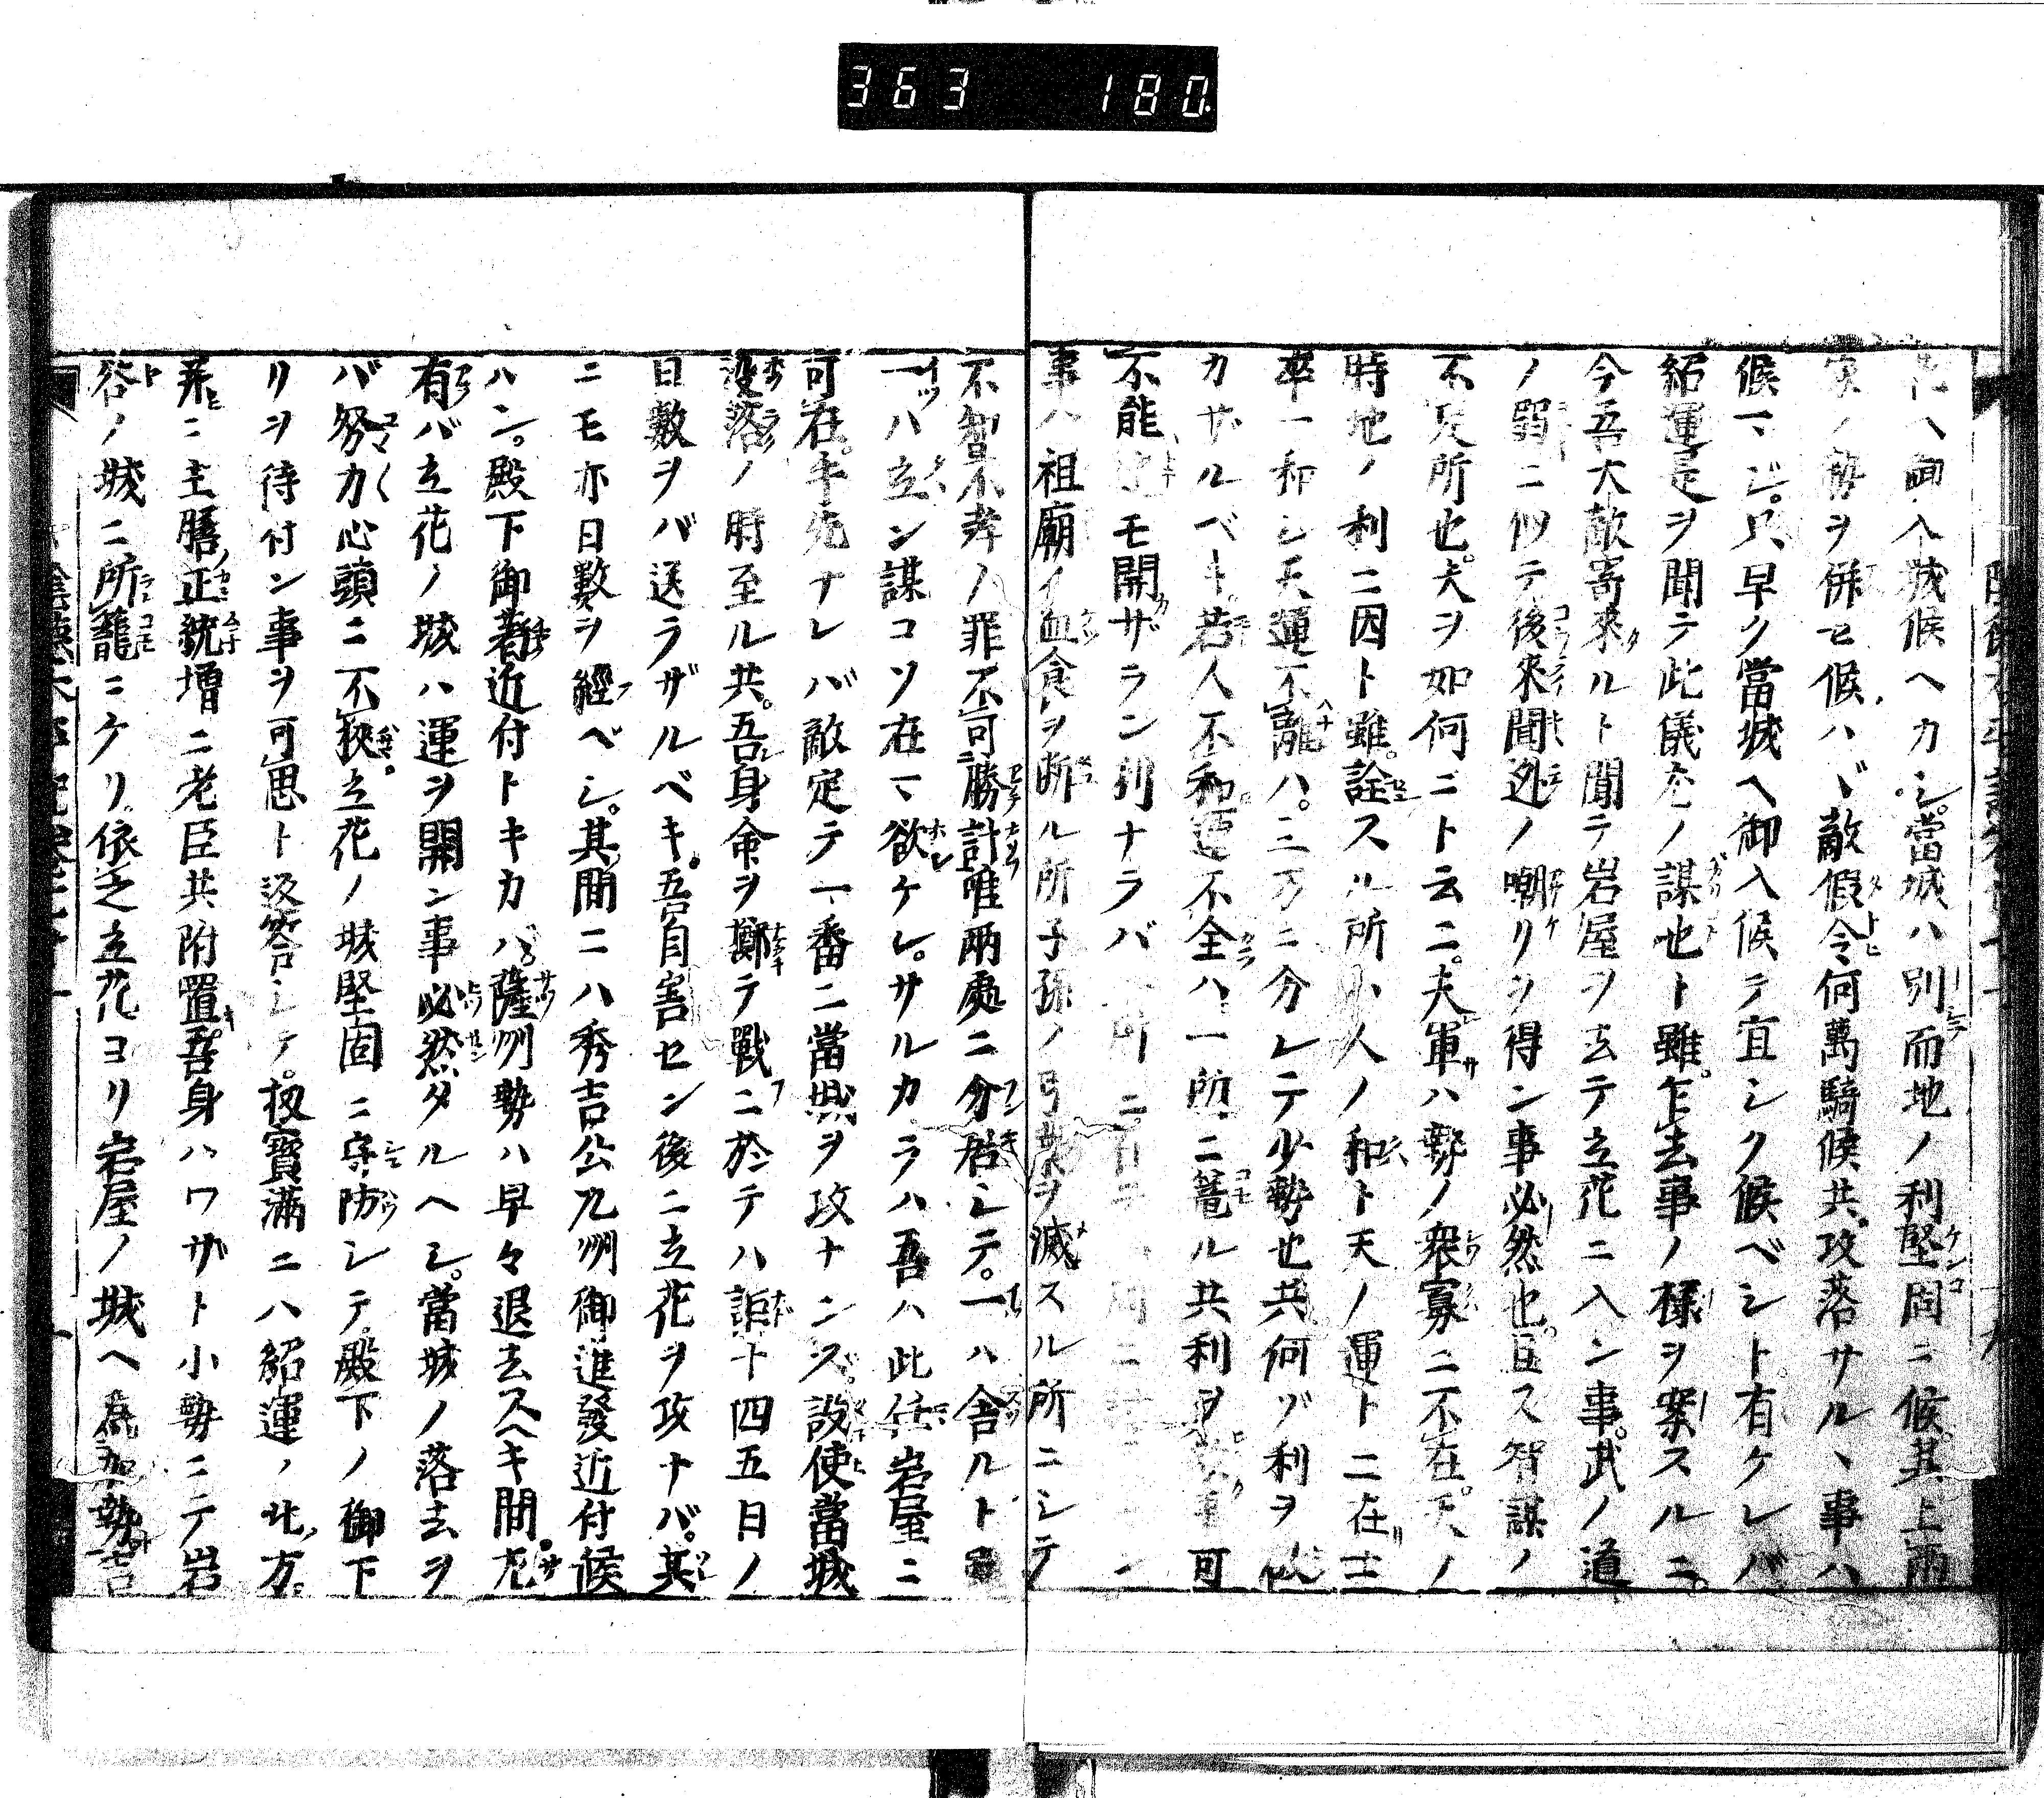 363 180
花ヘ御入城候ヘカシ。當城ハ別而地ノ利堅固ニ候其上兩
家ノ勢ヲ併セ候ハヾ敵假令何萬騎候共攻落サルヽ事ハ
候マジ。只早ク當城ヘ御入候テ宜シク候ベシト有ケレバ
紹運是ヲ聞テ此儀尤ノ謀也ト雖。乍去事ノ樣ヲ案スルニ。
今吾大敵寄來ルト聞テ岩屋ヲ去テ立花ニ入ン事。武ノ道
ノ弱ニ似テ後來聞迯ノ嘲リヲ得ン事必然也。且ス智謀ノ
不足所也。夫ヲ如何ニト云ニ。夫軍ハ勢ノ衆寡ニ不在。天ノ
時地ノ利ニ因ト雖。詮スル所ハ人ノ和ト天ノ運トニ在士
卒一和シ天運不離ハ。三乃ニ分レテ少勢也共何ゾ利ヲ
カサルベキ。若人不和運不全ハ、一所ニ篭ル共利ヲ 事可
不能 モ開ザラン 利ナラバ
事ハ祖廟ノ血食ヲ断ル所子孫ノ弓 ヲ滅スル所ニシテ
不智不孝ノ罪不可勝計唯兩處ニ分居シテ。一ハ舎ルト
一ハ立ン謀コソ在マ欲ケレ。サルカラハ吾ハ此任岩屋ニ
可在。年先ナレバ敵定テ一番ニ當城ヲ攻ナンズ。設使當城
没落ノ時至ル共。吾身命ヲ擲テ戰ニ於テハ詎十四五日ノ
日數ヲバ送ラザルベキ。吾自害セン後ニ立花ヲ攻ナバ。其
ニモ亦日數ヲ經ベシ。其間ニハ秀吉公九州御進發近付候
ハン。殿下御着近付トキカバ。薩州勢ハ早々退去スヘキ間。尤
有バ立花ノ城ハ運ヲ開ン事必然タルヘシ。當城ノ落去ヲ
バ努力心頭ニ不狹立花ノ城堅固ニ守防シテ。殿下ノ御下
リヲ待付ン事ヲ可思ト返答シテ。扨寶滿ニハ紹運ノ北ノ方。
弟ニ主膳正統増ニ老臣共附置。吾身ハワザト小勢ニテ岩
屋ノ城ニ所籠ニケリ。依之立花ヨリ岩屋ノ城ヘ為加勢吉